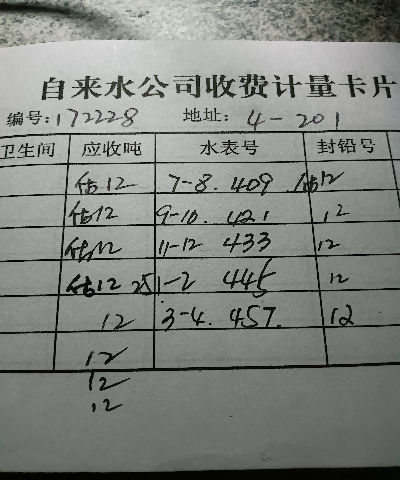 自来水公司收费计量卡片
编号:172228 地址: 4-201
卫生间 应收吨 水表号 封铅号
估12 7-8. 409. 估12
估12 9-10. 421 12
估12 11-12 433 12
估12 25 1-2 445 12
12 3-4. 457. 12
12
12
12